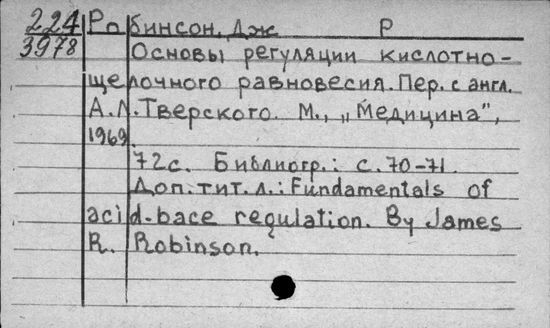 224 Робинсон, Дж Р
3978 Основы регуляции кислотно-
щелочного равновесия. Пер. с англ.
А.Л. Тверского. М., „Медицина",
1969.
72с. Библиогр.: с. 70-71.
Доп. тит. л.: Fundamentals of
acid-bace regulation. By James
R. Robinson.